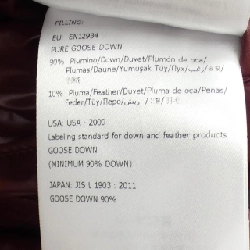 FILLING:
EU EN12934
PURE GOOSE DOWN
90% Plumino/Down/Duvet/Plumón de oca/
Plumas/Daune/Yumuşak Tüy/Пух/
10% Piuma/Feather/Duvet/Pluma de oca/Penas/
Feder/Tüy/Перо/
USA: USA - 2000
Labeling standard for down and feather products
GOOSE DOWN
(MINIMUM 90% DOWN)
JAPAN: JIS L 1903 : 2011
GOOSE DOWN 90%